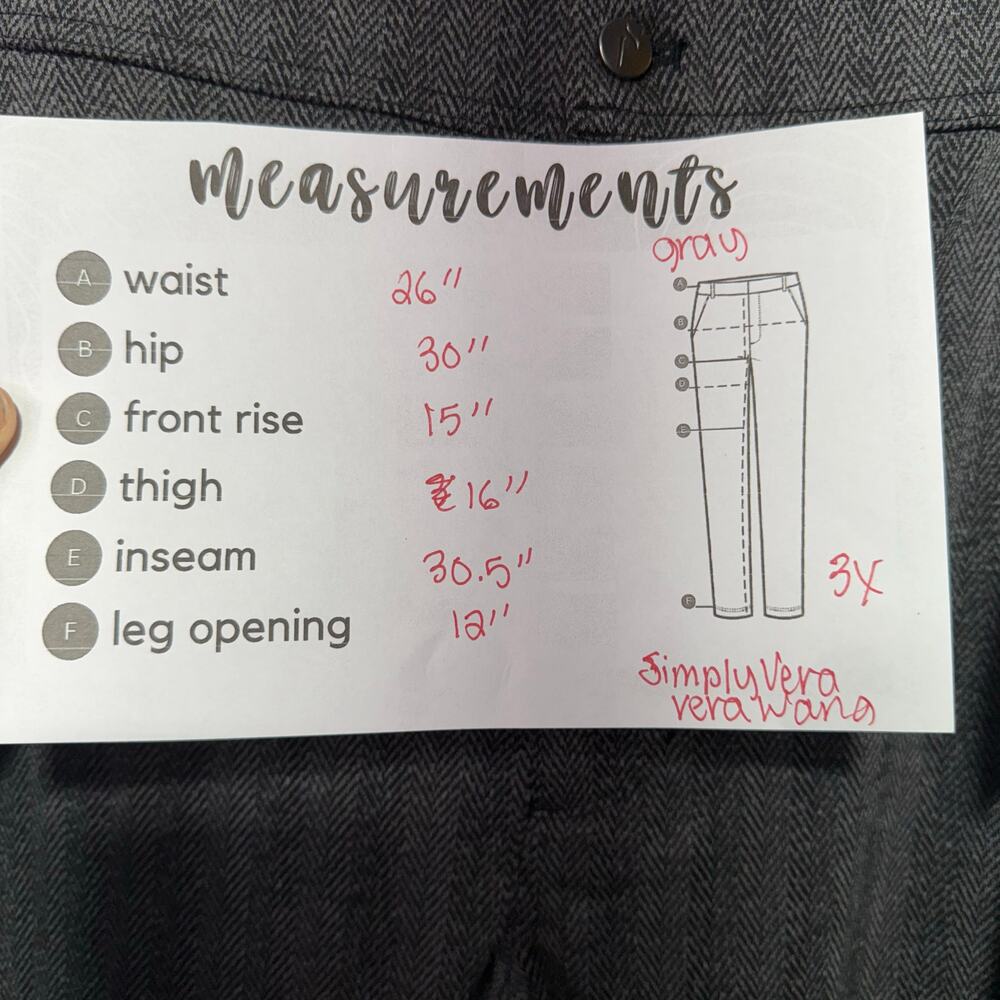 measurements
gray
A waist 26"
B hip 30"
C front rise 15"
D thigh 16"
E inseam 30.5"
F leg opening 12"
A
B
C
D
E
F
3X
Simply Vera
vera wang